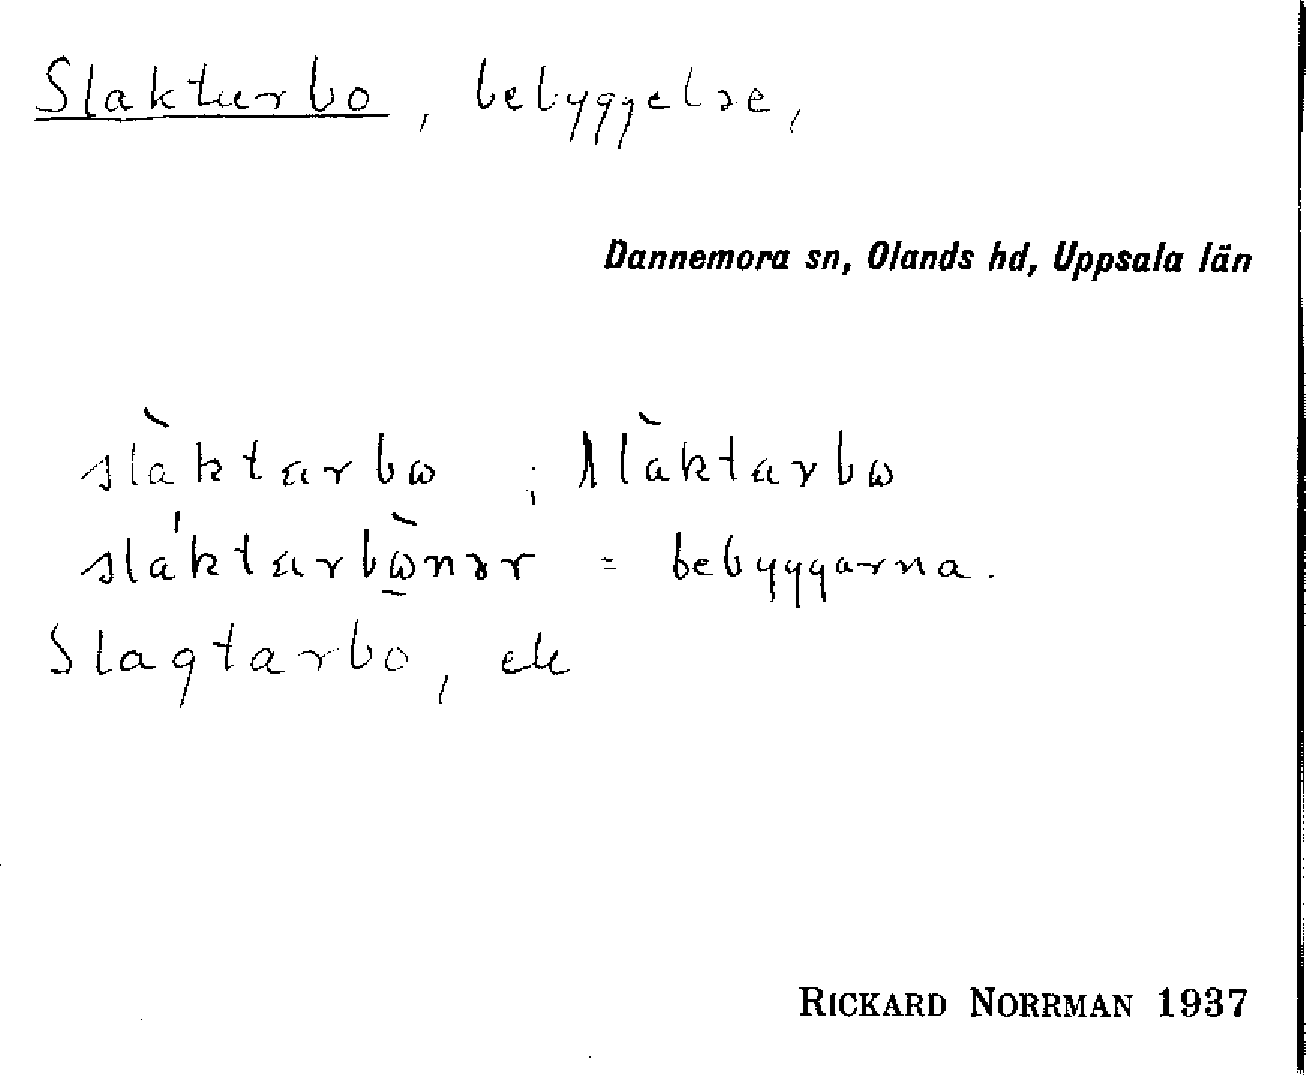 Slakterbo, bebyggelse,
Dannemora sn, Olands hd, Uppsala län
slàktarbω ; slàktarbω
sláktarbὼ̱nər = bebyggarna.
Slagtarbo, ek
RICKARD NORRMAN 1937